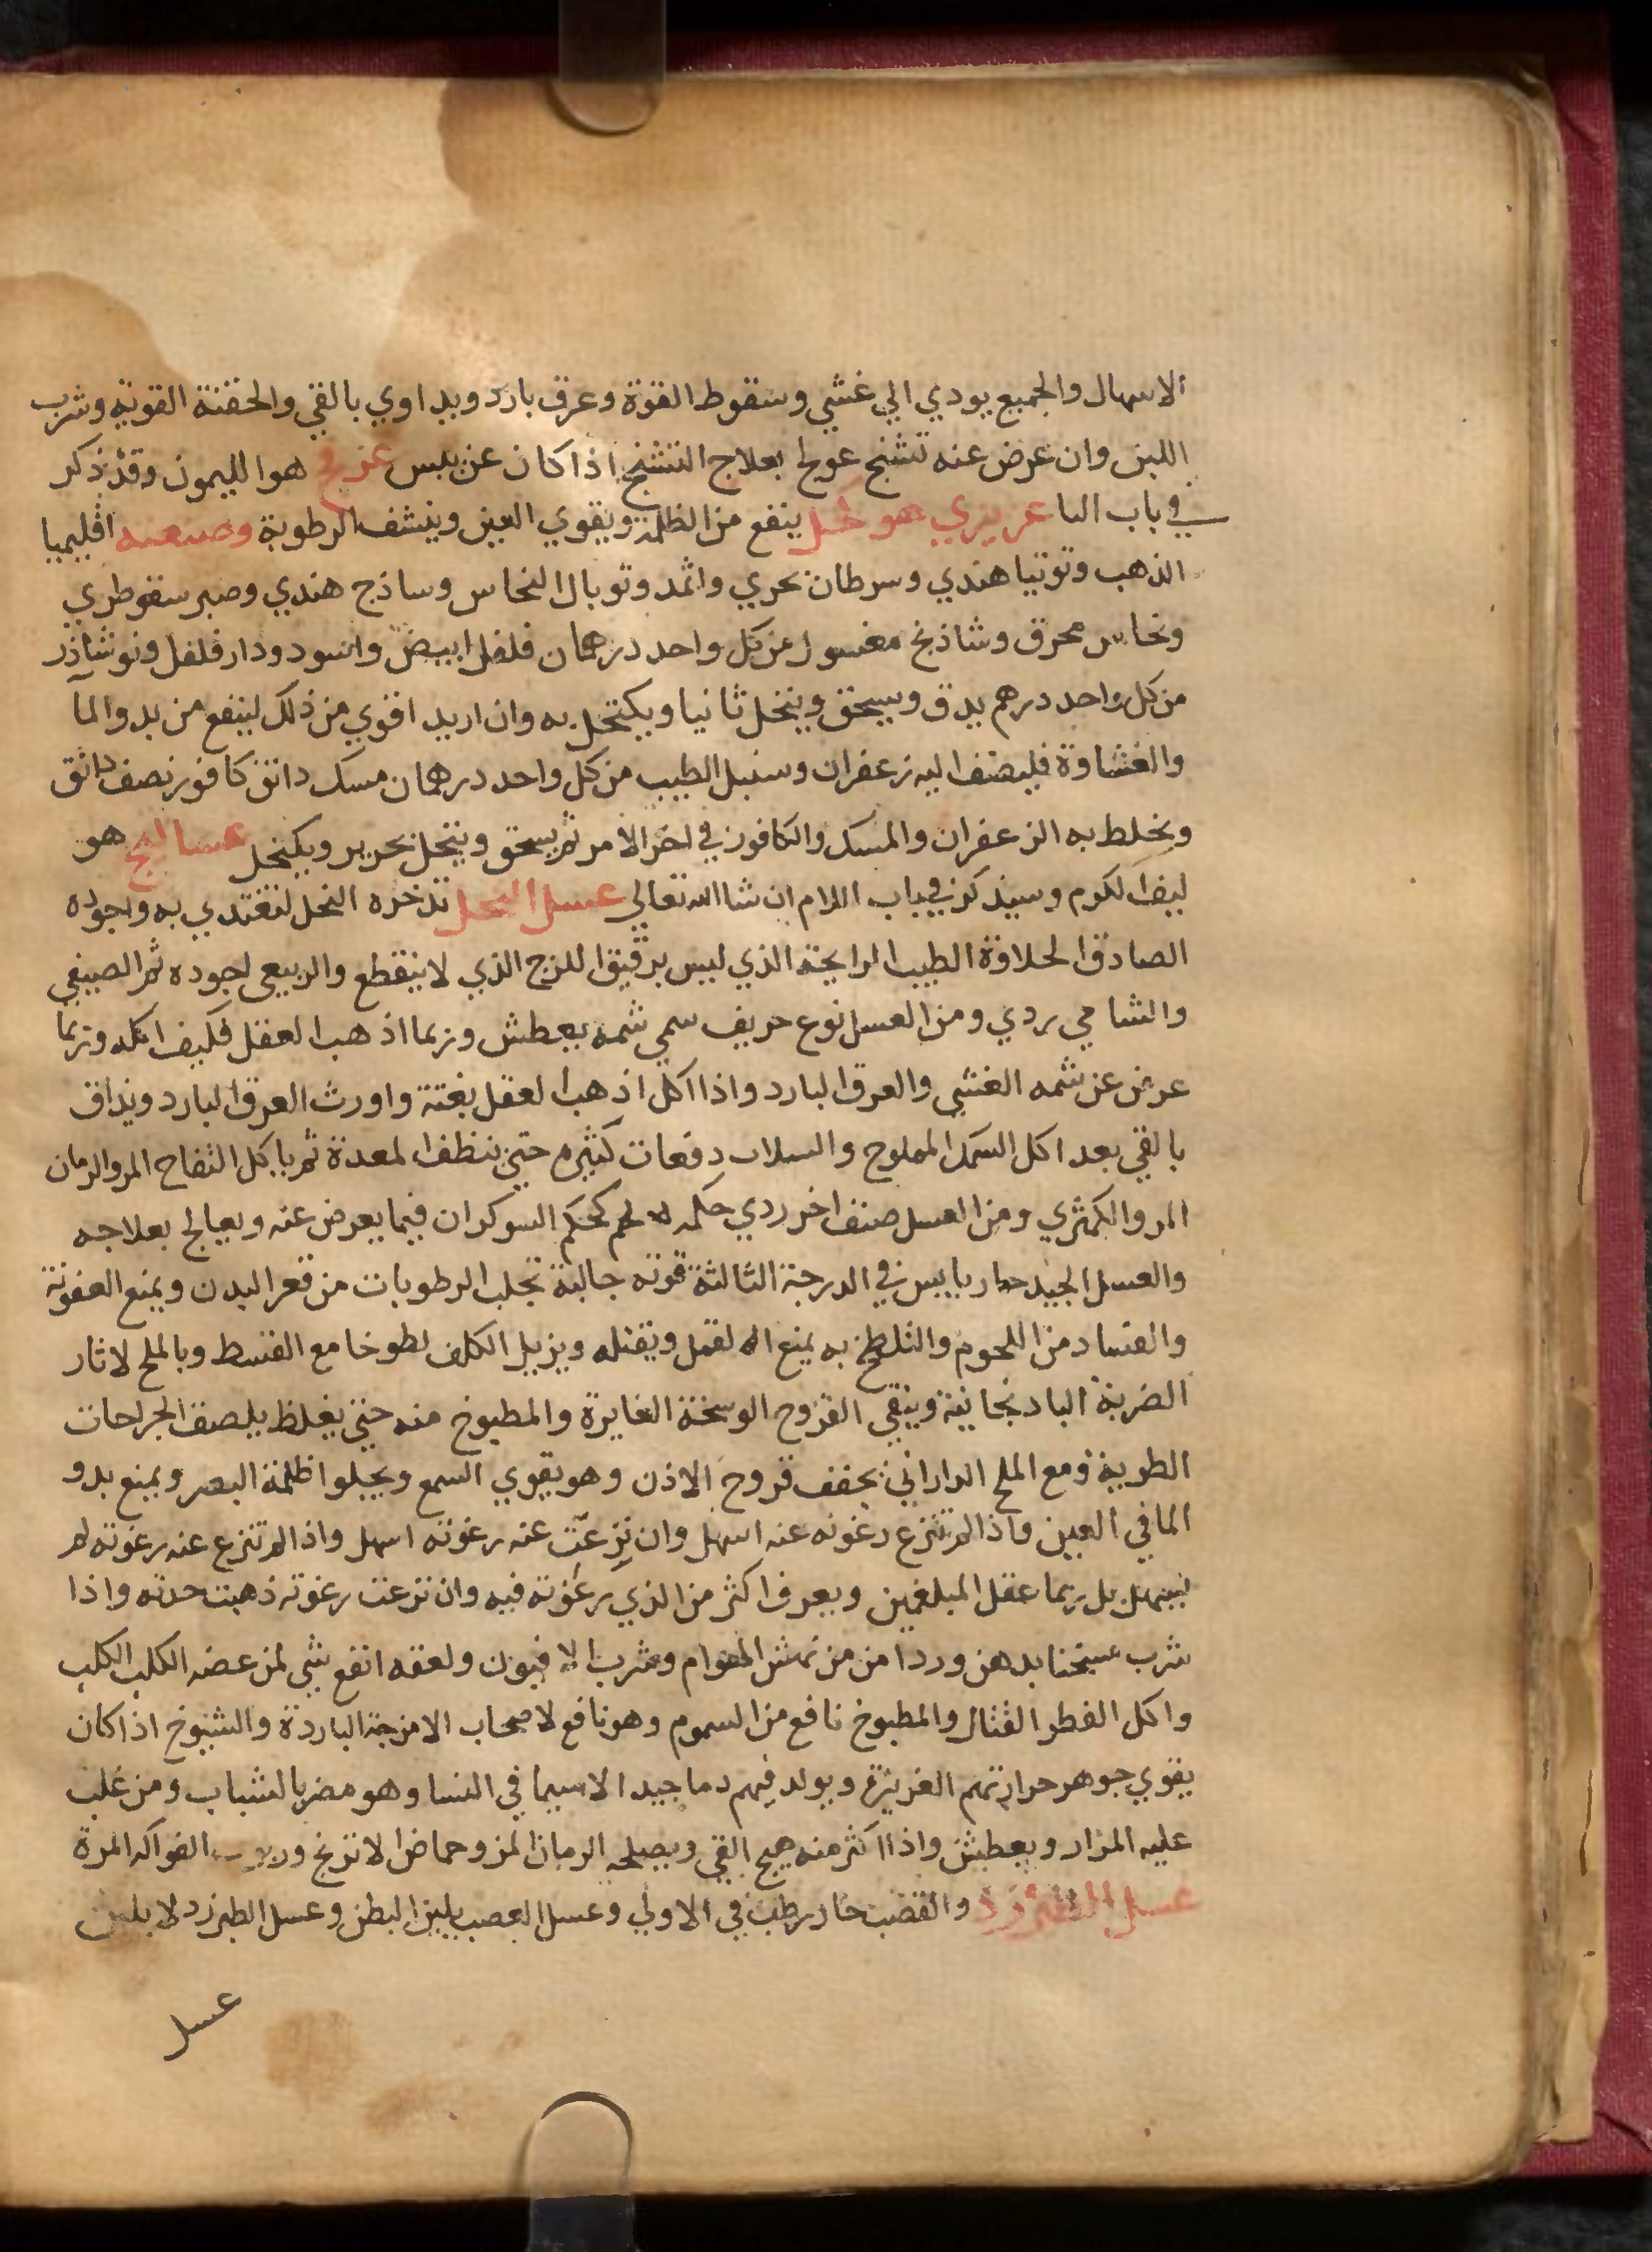 الاسهال والجميع يودي الي غشي وسقوط القوة وعرق بارد ويداوي بالقي والحقنة القوية وشرب
اللبن وان عرض عنه تشنج عولج بعلاج التشنج اذا كان عن يبس هو الليمون وقد ذكر
في باب البا عزيزي هو كحل ينفع من الظلمة ويقوي العين وينشف الرطوبة وصنعته اقليميا
الذهب وتوتيا هندي وسرطان بحري واثمد وتوبال النحاس وساذج هندي وصبر سقوطري
ونحاس محرق وشاذنج مغسول من كل واحد درهمان فلفل ابيض واسود ودار فلفل ونوشاذر
من كل واحد درهم يدق ويسحق وينخل ثانيا ويكتحل به وان اريد اقوي من ذلك لينفع من بدو الما
والغشاوة فليضف اليه زعفران وسنبل الطيب من كل واحد درهمان مسك دانق كافور نصف دانق
ويخلط به الزعفران والمسك والكافور في اخر الامر ثم يسحق وينخل بحرير ويكتحل عساليج هو
ليف الكرم وسيذكر في باب اللام ان شا الله تعالي عسل النحل تدخره النحل لتغتدي به واجوده
الصادق الحلاوة الطيب الرايحة الذي ليس برقيق اللزج الذي لا ينقطع والربيعي اجوده ثم الصيفي
والشتاءي ردي ومن العسل نوع حريف سمي شمه يعطش وربما اذهب العقل فكيف اكله وربما
عرض عن شمه الغشي والعرق البارد واذا اكل اذهب العقل بغتة واورث العرق البارد ويداق
بالقي بعد اكل السمك المملوح والسلاب دفعات كثيره حتي ينظف المعدة ثم ياكل التفاح المر والرمان
المر والكمثري ومن العسل صنف اخر ردي حكمه كحكم السوكران فيما يعرض عنه ويعالج بعلاجه
والعسل الجيد حار يابس في الدرجة الثالثة قوته جالبة تجلب الرطوبات من قعر البدن ويمنع العفونة
والفساد من اللحوم والتلطخ به يمنع القمل ويقتله ويزيل الكلف لطوخا مع القسط وبالملح لاثار
الضربة الباذنجانية وينقي القروح الوسخة الغايرة والمطبوخ منه حتي يغلظ يلصق الجراحات
الطرية ومع الملح الداراني يجفف قروح الاذن وهو يقوي السمع ويجلوا ظلمة البصر ويمنع بدو
الما في العين واذا لم تنزع رغوته عنه اسهل وان نزعت عنه رغوته اسهل واذا لم تنزع عنه رغوته لم
يسهل بل ربما عقل المبلغمين ويعرف اكثر من الذي رغوته فيه وان نزعت رغوته ذهبت حدته واذا
شرب مسخنا بدهن ورد امن من نهش الهوام وشرب الافيون ولعقه انفع شي لمن عضه الكلب الكلب
واكل الفطر القتال والمطبوخ نافع من السموم وهو نافع لاصحاب الامزجة الباردة والشيوخ اذا كان
يقوي جوهر حرارتهم الغريزة ويولد فيهم دما جيدا لاسيما في النسا وهو مضر بالشباب ومن غلب
عليه المرار ويعطش واذا اكثر منه هيج القي ويصلحه الرمان المز وحماض الاترنج وربوب الفواكه المرة
عسل الطبرزد والقصب حار رطب في الاولي وعسل القصب يلين البطن وعسل الطبرزد لا يلين
عسل